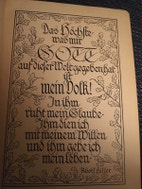 Das Höchste
was mir
GOTT
auf dieser Welt gegeben hat
ist
mein Volk!
In ihm
ruht mein Glaube
Ihm dien ich
mit meinem Willen
und ihm gebe ich
mein Leben.
Adolf Hitler